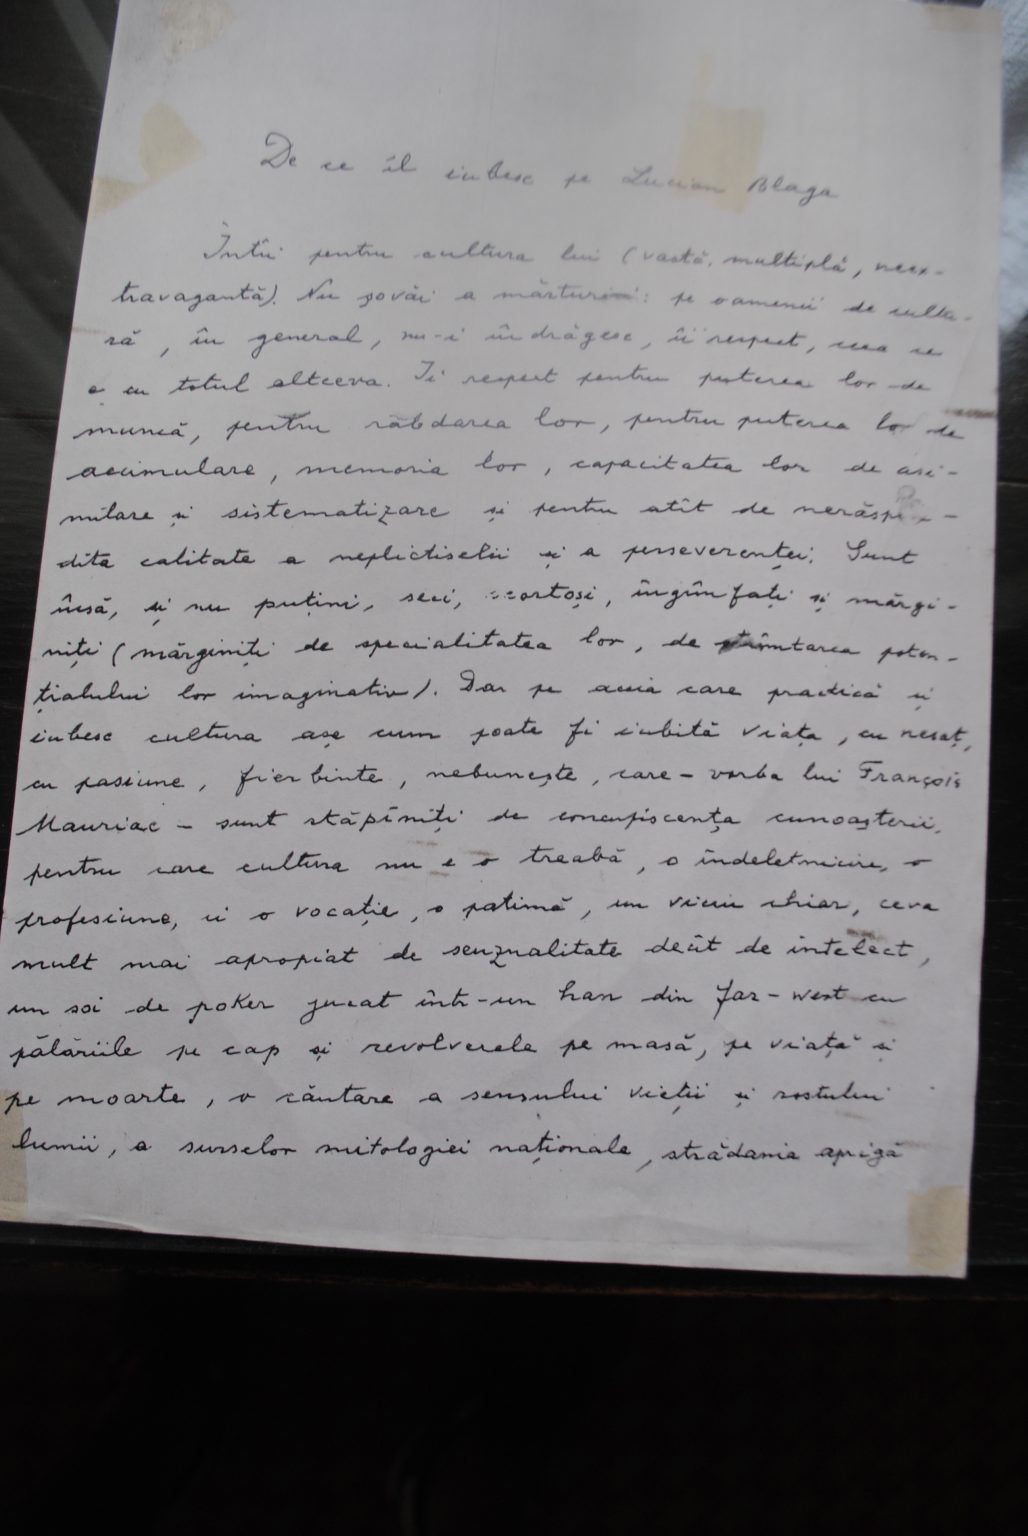 De ce îl iubesc pe Lucian Blaga
Întîi pentru cultura lui (vastă, multiplă, neex-
travagantă). Nu șovăi a mărturisi: pe oamenii de cultu-
ră, în general, nu-i îndrăgesc, îi respect, ceea ce
e cu totul altceva. Îi respect pentru puterea lor de
muncă, pentru răbdarea lor, pentru puterea lor de
acumulare, memoria lor, capacitatea lor de asi-
milare și sistematizare și pentru atît de nerăspî-
dita calitate a neplictiselii și a perseverenței. Sunt
însă, și nu puțini, seci, scorțoși, îngîmfați și mărgi-
niți (mărginiți de specialitatea lor, de strîmtarea poten-
țialului lor imaginativ). Dar pe aceia care practică și
iubesc cultura așa cum poate fi iubită viața, cu nesaț,
cu pasiune, fierbinte, nebunește, care – vorba lui François
Mauriac – sunt stăpîniți de concupiscența cunoașterii,
pentru care cultura nu e o treabă, o îndeletnicire, o
profesiune, ci o vocație, o patimă, un viciu chiar, ceva
mult mai apropiat de senzualitate decît de intelect,
un soi de poker jucat într-un han din far-west cu
pălăriile pe cap și revolverele pe masă, pe viață și
pe moarte, o căutare a sensului vieții și rostului
lumii, a surselor mitologiei naționale, strădania aprigă